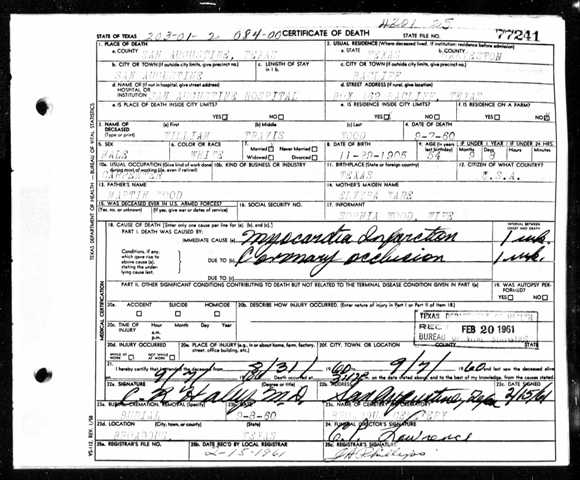 4201 25
STATE OF TEXAS 203-01-2 084-00 CERTIFICATE OF DEATH STATE FILE NO. 77241
1. PLACE OF DEATH 2. USUAL RESIDENCE (Where deceased lived. If institution: residence before admission)
a. COUNTY SAN AUGUSTINE, TEXAS a. STATE TEXAS b. COUNTY
b. CITY OR TOWN (If outside city limits, give precinct no.) c. LENGTH OF STAY in 1 b. c. CITY OR TOWN (If outside city limits, give precinct no.)
SAN AUGUSTINE
d. NAME OF (If not in hospital, give street address) HOSPITAL OR INSTITUTION SAN AUGUSTINE HOSPITAL d. STREET ADDRESS (If rural, give location)
e. IS PLACE OF DEATH INSIDE CITY LIMITS? YES NO e. IS RESIDENCE INSIDE CITY LIMITS? YES NO f. IS RESIDENCE ON A FARM? YES NO
3. NAME OF DECEASED (Type or print) (a) First (b) Middle (c) Last 4. DATE OF DEATH
WILLIAM TRAVIS 9-7-60
5. SEX 6. COLOR OR RACE 7. Married Never Married Widowed Divorced 8. DATE OF BIRTH 9. AGE (In years last birthday) IF UNDER 1 YEAR IF UNDER 24 HRS.
MALE WHITE 11-29-1905 54 9 8
10a. USUAL OCCUPATION (Give kind of work done during most of working life, even if retired) 10b. KIND OF BUSINESS OR INDUSTRY 11. BIRTHPLACE (State or foreign country) 12. CITIZEN OF WHAT COUNTRY?
CARPENTER TEXAS U.S.A.
13. FATHER'S NAME 14. MOTHER'S MAIDEN NAME
MARTIN
15. WAS DECEASED EVER IN U.S. ARMED FORCES? 16. SOCIAL SECURITY NO. 17. INFORMANT
(Yes, no, or unknown) (If yes, give war or dates of service) WIFE
18. CAUSE OF DEATH [Enter only one cause per line for (a), (b), and (c).] INTERVAL BETWEEN ONSET AND DEATH
PART I. DEATH WAS CAUSED BY:
IMMEDIATE CAUSE (a) Myocardia Infarction 1 wk.
Conditions, if any, which gave rise to above cause (a), stating the underlying cause last. DUE TO (b) Coronary occlusion 1 wk.
DUE TO (c)
PART II. OTHER SIGNIFICANT CONDITIONS CONTRIBUTING TO DEATH BUT NOT RELATED TO THE TERMINAL DISEASE CONDITION GIVEN IN PART I(a) 19. WAS AUTOPSY PERFORMED? YES NO
20a. ACCIDENT SUICIDE HOMICIDE 20b. DESCRIBE HOW INJURY OCCURRED. (Enter nature of injury in Part I or Part II of item 18.)
20c. TIME OF INJURY Hour Month Day Year a.m. p.m.
REC FEB 20 1961
20d. INJURY OCCURRED 20e. PLACE OF INJURY (e.g., in or about home, farm, factory, street, office building, etc.) 20f. CITY, TOWN, OR LOCATION COUNTY STATE
WHILE AT WORK NOT WHILE AT WORK
21. I hereby certify that I attended the deceased from 8/31/ 1960 to 9/7/ 1960 and last saw the deceased alive
on 9/7 1960 Death occurred at on the date stated above; and to the best of my knowledge, from the causes stated.
22a. SIGNATURE (Degree or title) 22b. ADDRESS 22c. DATE SIGNED
M.D. San Augustine, Texas 2/15/61
23a. BURIAL, CREMATION, REMOVAL (Specify) 23b. DATE 23c. NAME OF CEMETERY
BURIAL 9-8-60 CEMETERY
23d. LOCATION (City, town, or county) (State) 24. FUNERAL DIRECTOR'S SIGNATURE
BROADDUS, TEXAS Lawrence
25a. REGISTRAR'S FILE NO. 25b. DATE REC'D BY LOCAL REGISTRAR 25c. REGISTRAR'S SIGNATURE
2-15-1961 Phillips
TEXAS DEPARTMENT OF HEALTH — BUREAU OF VITAL STATISTICS
MEDICAL CERTIFICATION
VS-112 REV. 1/58